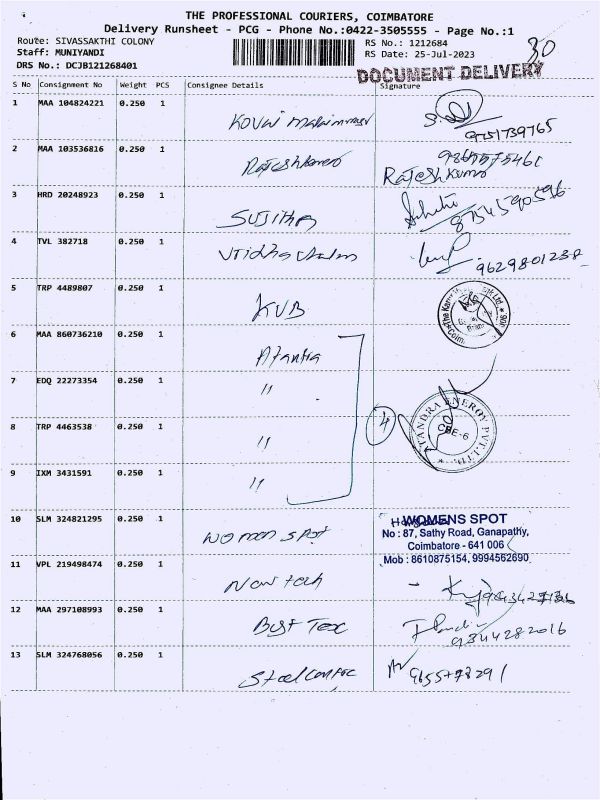 THE PROFESSIONAL COURIERS, COIMBATORE
Delivery Runsheet - PCG - Phone No.:0422-3505555 - Page No.:1
Route: SIVASSAKTHI COLONY
RS No.: 1212684
30
Staff: MUNIYANDI
RS Date: 25-Jul-2023
DRS No.: DCJB121268401
DOCUMENT DELIVERY
S No Consignment No Weight PCS Consignee Details Signature
1 MAA 104824221 0.250 1
9751739765
2 MAA 103536816 0.250 1 Rajeshkumar
Rajeshkumar
3 HRD 20248923 0.250 1 SUJITHA
8754590596
4 TVL 382718 0.250 1
9629801238
5 TRP 4489807 0.250 1 KVB
6 MAA 860736210 0.250 1
7 EDQ 22273354 0.250 1 "
4
CBE-6
8 TRP 4463538 0.250 1 "
9 IXM 3431591 0.250 1 "
10 SLM 324821295 0.250 1 women spot
WOMENS SPOT
No : 87, Sathy Road, Ganapathy,
Coimbatore - 641 006
Mob : 8610875154, 9994562690
11 VPL 219498474 0.250 1 New tech
12 MAA 297108993 0.250 1 Best Tex
9344282016
13 SLM 324768056 0.250 1